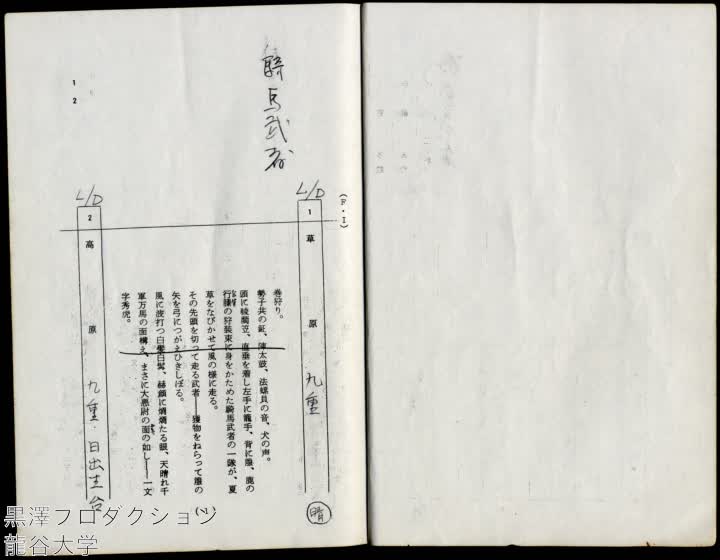 騎馬武者
(F・I)
L/D
1 草原 九重
巻狩り。
勢子共の鉦、陣太鼓、法螺貝の音、犬の声。
頭に綾藺笠、直垂を着し左手に籠手、背に箙、鹿の
行縢の狩装束に身をかためた騎馬武者の一隊が、夏
草をなびかせて風の様に走る。
その先頭を切って走る武者――獲物をねらって箙の
矢を弓につがえひきしぼる。
風に波打つ白鬢白髯、赫顔に燗燗たる眼、天晴れ千
軍万馬の面構え、まさに大悪尉の面の如し――一文
字秀虎。
L/D
2 高原 九重・日出生台
1
2
晴
(1)
黒澤プロダクション
龍谷大学